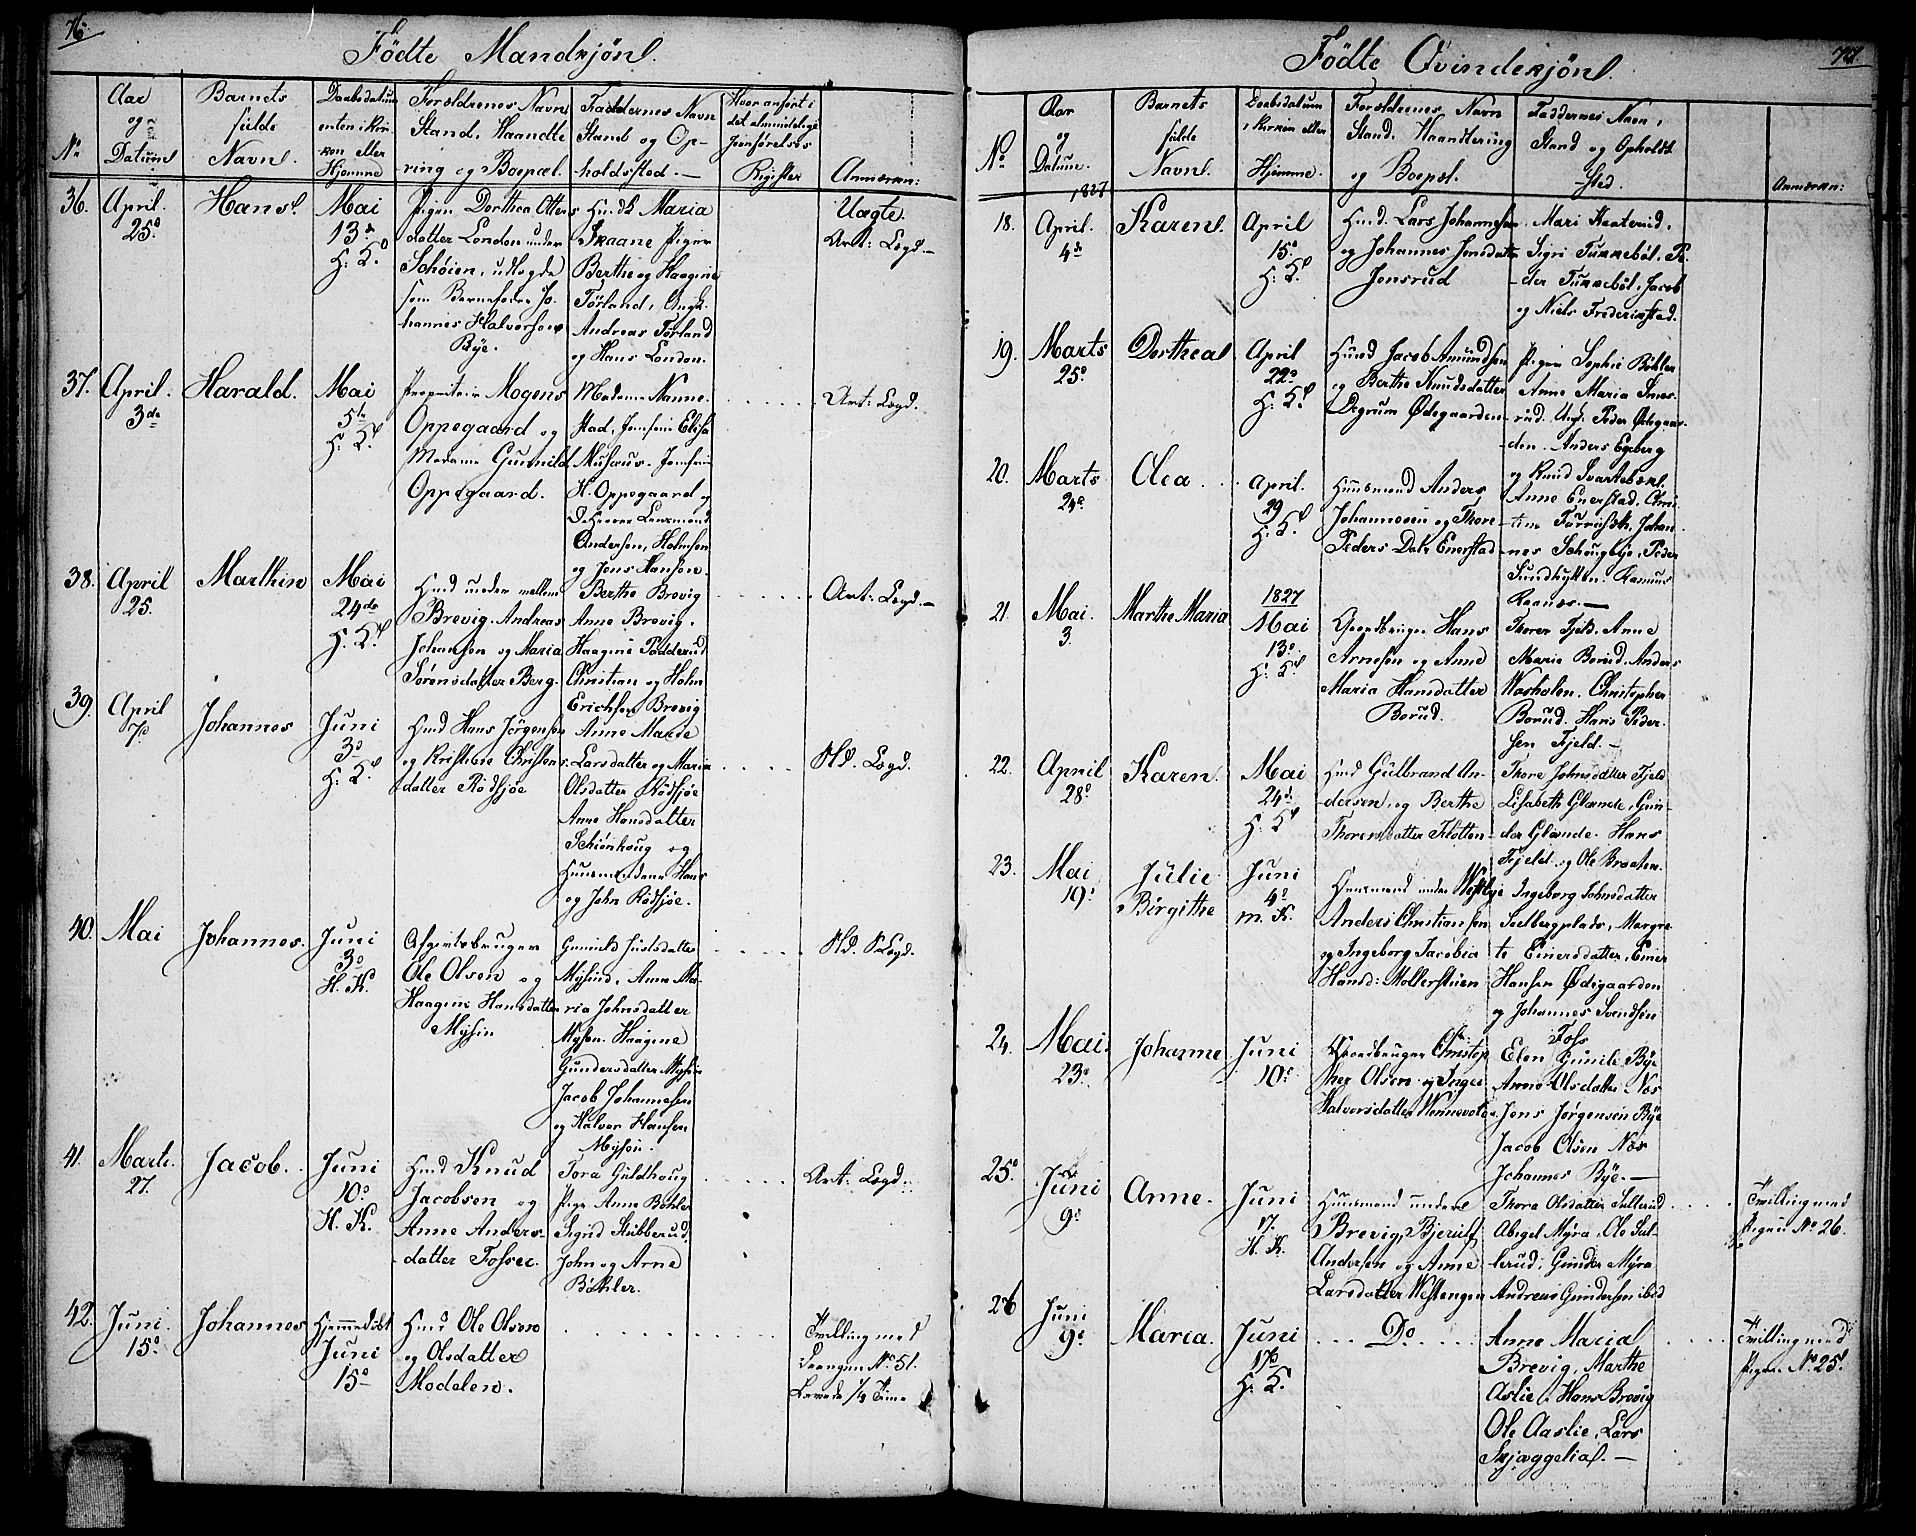 76.
Födte Mandkjön.
No
Aar
og
Datum
Barnets
fulde
Navn.
Daabsdatum
enten i Kir-
ken eller
Hjemme
Foroldrenes Navn
Stand, Haandte
ring og Boepæl.
Faddernes Navn
Stand og Op-
holdssted.
Hvor anført i
det almindelige
Jevnførelses
Register
Anmærkn:
36. April. 25d
Hans.
Mai
13de
H: K.
Pigen Dorthea Otters
datter London under
Schöien, udlagde
som Barnefader Jo-
hannes Halvorsen
Bye.
Husmd: Maria
Skaane Pigen
Berthe og Haagine
Törland, Ungk.
Andreas Törland
og Hans London.
Uægte.
Art: Lægd.
37. April. 3de
Harald.
Mai
5te
H: K.
Proprietair Mogens
Oppegaard og
Madame Gunnild
Oppegaard.
Madame Nanne-
stad, Jomfrue Elisa
Musæus. Jomfrue
H. Oppegaard og
De Herrer Lensmand
Andersen, Holmsen
og Jens Hansen.
Art: Lægd.
38. April 25.
Marthin
Mai
24de
H: K.
Hmd under mellem
Brevig. Andreas
Johansen og Maria
Sörensdatter Berg.
Berthe Brevig
Anne Brevig.
Haagine Padderud
Christian og Holm
Erichsen Brevig
Art: Lægd.
39. April 7d
Johannes
Juni
3d
H: K.
Hmd Hans Jörgensen
og Kristine Christens
datter Rödsjöe
Anne Marie
Larsdatter og Maria
Olsdatter Rödsjöe
Anne Hansdatter
Schiönhoug og
Huusmændene Hans
og John Rödsjöe.
Hd. Lægd.
40. Mai
Johannes.
Juni
3d
H. K.
Afgiftsbruger
Ole Olsen og
Haagine Hansdatter
Mysen
Gunnild Justsdatter
Mysend, Anne Ma-
ria Johnsdatter
Mysen. Haagine
Gundersdatter Mysen
Jacob Johannesen
og Halvor Hansen
Mysen.
Hd. Lægd.
41. Marts. 27.
Jacob.
Juni
10d
H. K.
Hmd Knud
Jacobsen og
Anne Anders-
datter Fosser.
Tora Guldhoug
Pige Anne Böhler
Sigrid Stubberud,
John og Arne
Böhler.
Art: Lægd.
42. Juni. 15d
Johannes
Hjemmedöbt
Juni
15d
Hmd Ole Olsen
og Olsdatter
Modelen.
Tvilling med
Drengen No 51.
Levede 1/4 Time
77.
Födte Qvindekjön.
No
Aar
og
Datum.
1827
Barnets
fulde
Navn.
Daabsdatum
i Kirken eller
Hjemme.
Foroldrenes Navn
Stand, Haandtering
og Boepæl.
Faddernes Navn,
Stand og Opholds
sted.
Anmærkn:
18. April. 4de
Karen.
April
15d
H: K.
Husd. Lars Johannesen
og Johannes Jensdatter
Jonsrud
Mari Haaterud,
Sigri Tunnebøl, Pe-
der Tunnebøl, Jacob
og Niels Frederikstad.
19. Marts 25d
Dorthea
April
22d
H: K.
Husd Jacob Amundsen
og Berthe Knudsdatter
Degrum Ødegaarden
Pigen Sophie Böhler
Anne Maria Smes-
rud. Ungk. Peder Ødegaar-
den. Anders Egeberg
og Knud Svartebæk.
20. Marts 24d
Olea
April.
29
H: K.
Huusmand Anders
Johannesen og Thore
Peders Datr. Enerstad
Anne Enerstad, Chris-
tine Furruseth, Johan-
nes Schougbye, Peder
Sundbytten. Rasmus
Raanæs.
21. Mai. 3.
Marthe Maria
1827
Mai
13d
H: K.
Gaardbruger Hans
Arnesen og Anne
Maria Hansdatter
Borud.
Thorer Fjeld. Anne
Marie Borud. Anders
Washolen. Christopher
Borud. Hans Peder-
sen Fjeld.
22. April 28d
Karen
Mai
24de
H: K.
Hmd Gulbrand An-
dersen, og Berthe
Thorersdatter Flotten-
Thore Johnsdatter Fjeld
Lisabeth Glænde, Gun-
der Glænde. Hans
Fjeld. og Ole Braaten.
23. Mai 19d
Julie
Birgithe
Juni
4d
m. K.
Huusmand under Westbye
Anders Christiansen
og Ingeborg Jacobia
Hansd: Mollerstuen
Ingeborg Johnsdatter
Salbergplads, Margre-
te Einersdatter, Einer
Hansen Ødegaarden
og Johannes Svendsen
Foss
24. Mai. 23d
Johanne
Juni
10d
Gaardbruger Christop
her Olsen og Inger
Halvorsdatter Wennevold
Elen Gunild Bye
Anne Olsdatter Næs
Jens Jørgensen Bye
Jacob Olsen Næs
Johannes Bye.
25d Juni 9d
Anne.
Juni
17.
H. K.
Huusmand under
Brevig, Bjerulf
Andersen og Anne
Larsdatter Westengen
Thora Olsdatter Sulerud
Abigel Myra, Ole Sul-
lerud, Gunder Myra
Andreas Gundersen ibid
Tvilling med
Pigen No 26.
26 Juni 9d
Maria.
Juni
17d
H: K.
Do
Anne Maria
Brevig, Marthe
Aslie. Hans Brevig
Ole Aaslie, Lars
Skjæggelia.
Tvilling med
Pigen No 25.